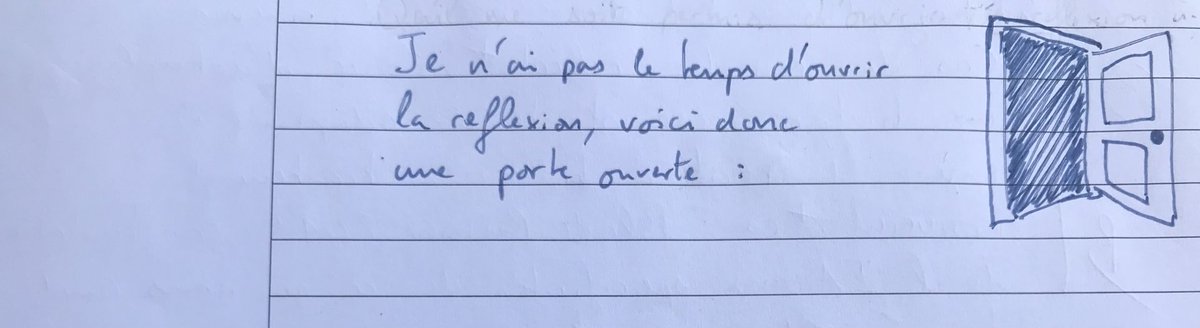 Je n'ai pas le temps d'ouvrir
la reflexion, voici donc
une porte ouverte :